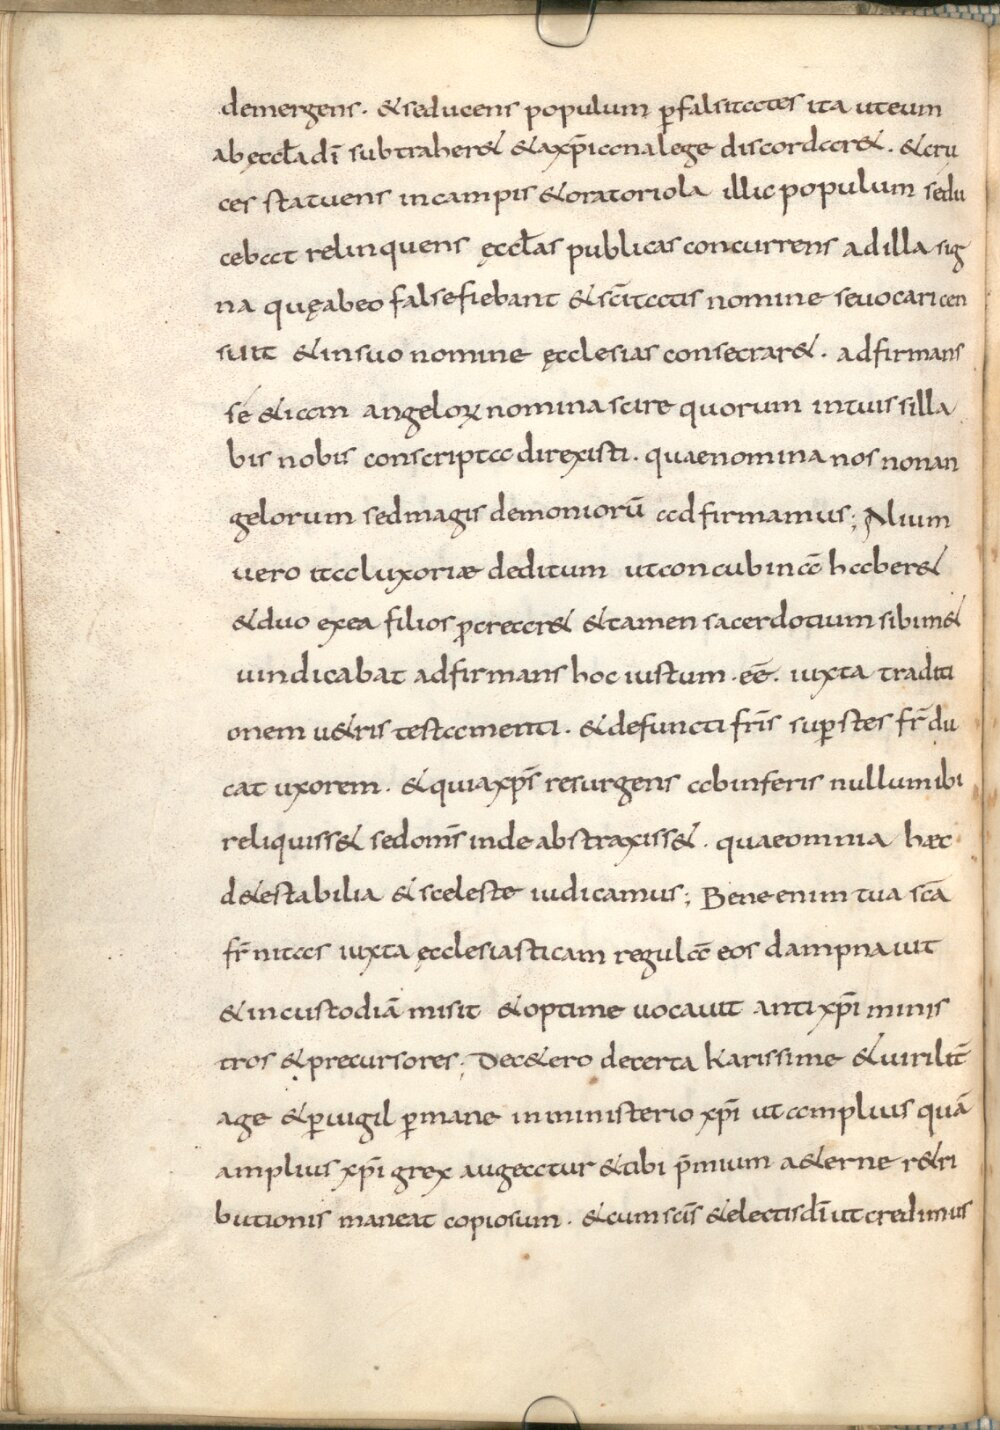 demergens. &seducens populum p̄falsitates ita uteum
abęccƚadī subtraher& &axp̄iana lege discordar&. &cru
ces statuens incampis &oratoriola illic populum sedu
cebat relinquens ęccƚas publicas concurrens adilla sig
na quęabeo falsefiebant &sc̄itatis nomine seuocari cen
suit &insuo nomine ęcclesias consecrar&. adfirmans
sé &iam angeloꝝ nomina scire quorum intuis silla
bis nobis conscripta direxisti. quaenomina nos nonan
gelorum sedmagis demoniorū adfirmamus; Alium
uero ita luxoriæ deditum utconcubinā haber&
&duo exea filios p̄crear& &tamen sacerdotium sibim&
uindicabat adfirmans hoc iustum.eē. iuxta traditi
onem u&ris testamenti. &defuncti fr̄is sup̄stes fr̄ du
cat uxorem. &quiaxp̄s resurgens abinferis nullumibi
reliquiss& sedom̄s inde abstraxiss&. quaeomnia hæc
d&estabilia &sceleste iudicamus; Bene enim tua sc̄a
fr̄nitas iuxta ęcclesiasticam regulā eos dampnauit
&incustodiā misit &optime uocauit antixp̄i minis
tros &precursores; Dec&ero decerta karissime &uirilit̄
age &p̄uigil p̄mane inministerio xp̄i ut amplius quā
amplius xp̄i grex augeatur &tibi p̄mium a&erne r&ri
butionis maneat copiosum. &cum sc̄is &electisdī ut credimus